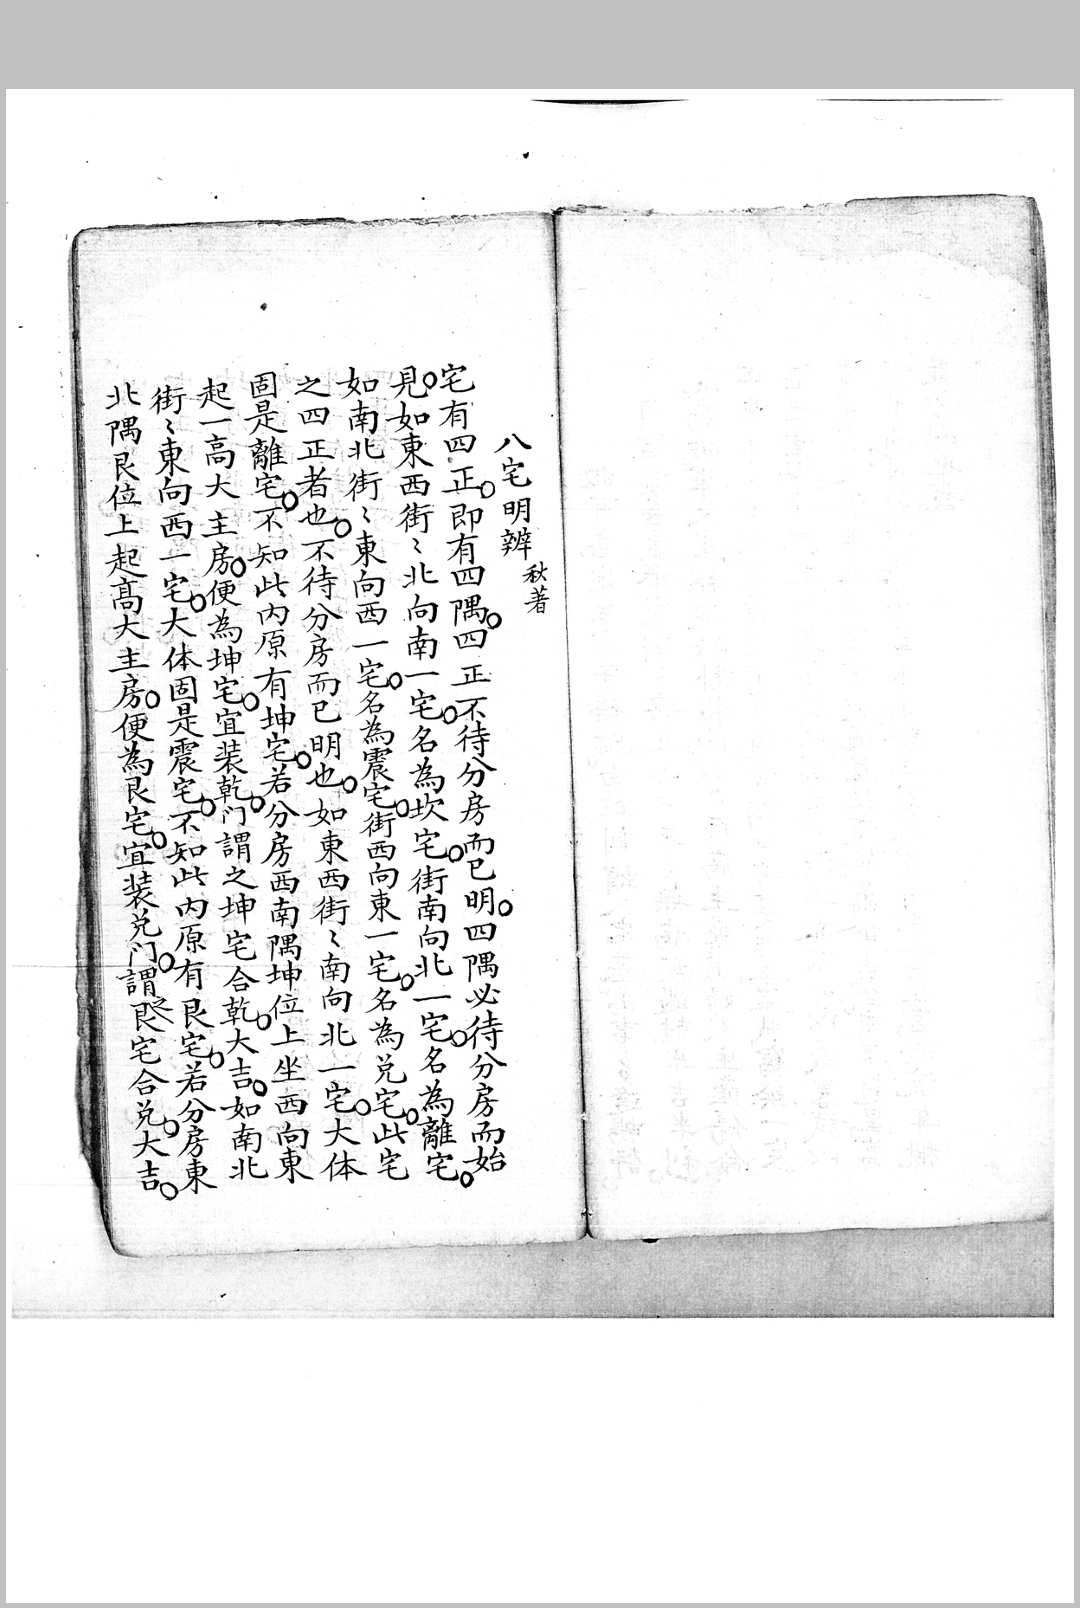 八宅明辨 秋著
宅有四正。即有四隅。四正不待分房而已明。四隅必待分房而始
見。如東西街〻北向南一宅。名為坎宅。街南向北一宅。名為離宅。
如南北街〻東向西一宅。名為震宅。街西向東一宅。名為兑宅。此宅
之四正者也。不待分房而已明也。如東西街〻南向北一宅。大体
固是離宅。不知此内原有坤宅。若分房西南隅坤位上坐西向東
起一高大主房。便為坤宅。宜装乾。门謂之坤宅合乾。大吉。如南北
街〻東向西一宅。大体固是震宅。不知此内原有艮宅。若分房東
北隅艮位上起髙大主房。便為艮宅。宜装兑门。謂之艮宅合兑。大吉。